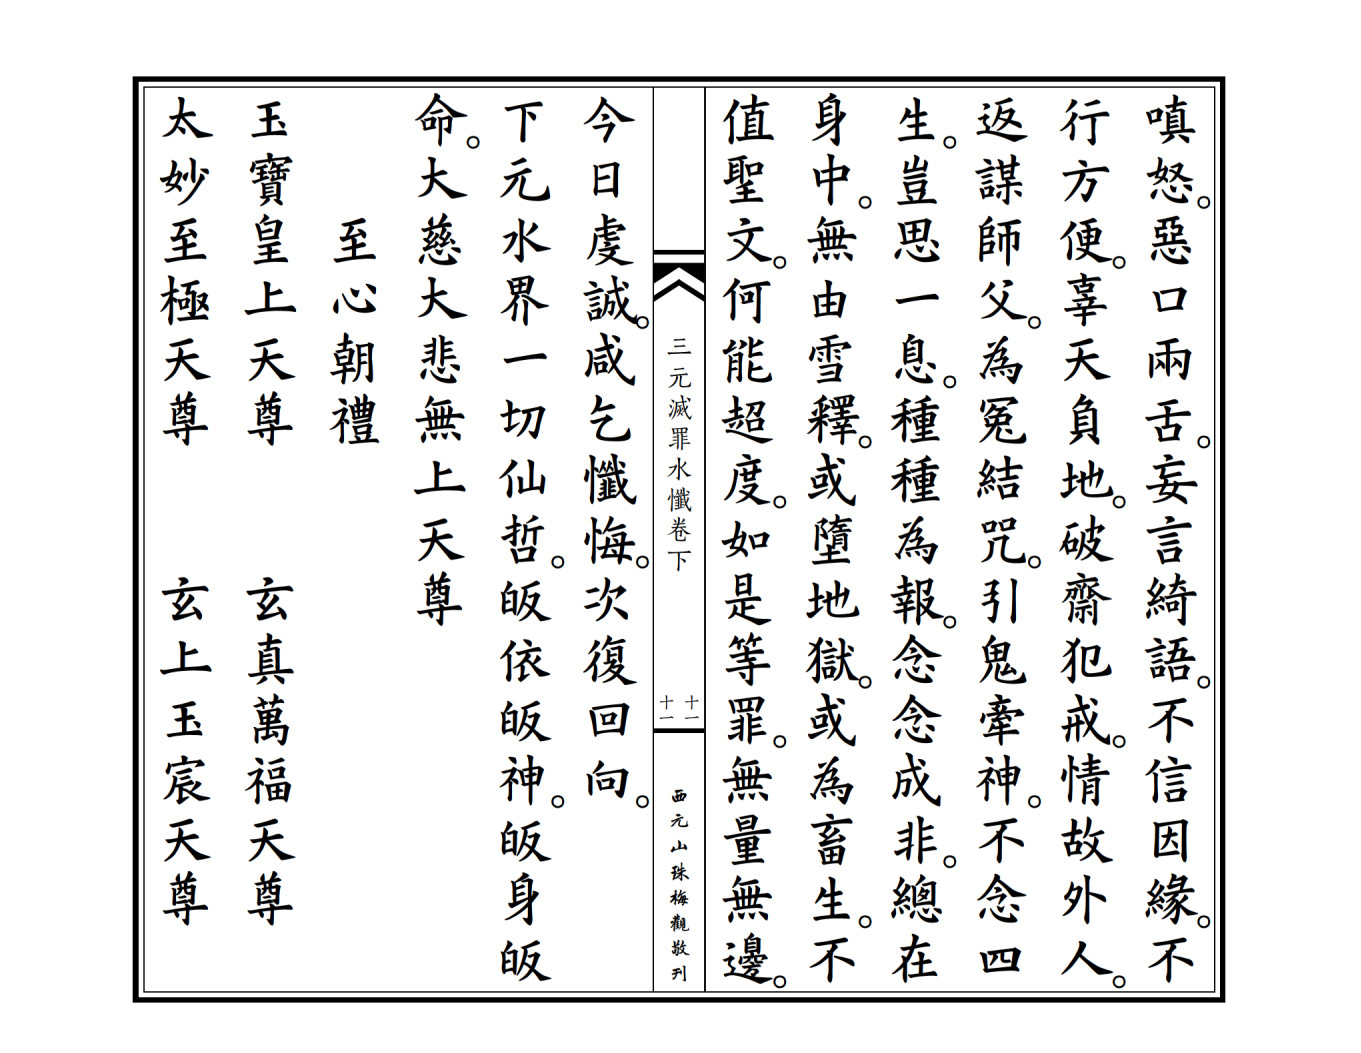 嗔怒。惡口兩舌。妄言綺語。不信因緣。不
行方便。辜天負地。破齋犯戒。情故外人。
返謀師父。為冤結咒。引鬼牽神。不念四
生。豈思一息。種種為報。念念成非。總在
身中。無由雪釋。或墮地獄。或為畜生。不
值聖文。何能超度。如是等罪。無量無邊。
三元滅罪水懺卷下
十一
十一
西元山珠梅觀敬刊
今日虔誠。咸乞懺悔。次復回向。
下元水界一切仙哲。皈依皈神。皈身皈
命。大慈大悲無上天尊
至心朝禮
玉寶皇上天尊　玄真萬福天尊
太妙至極天尊　玄上玉宸天尊